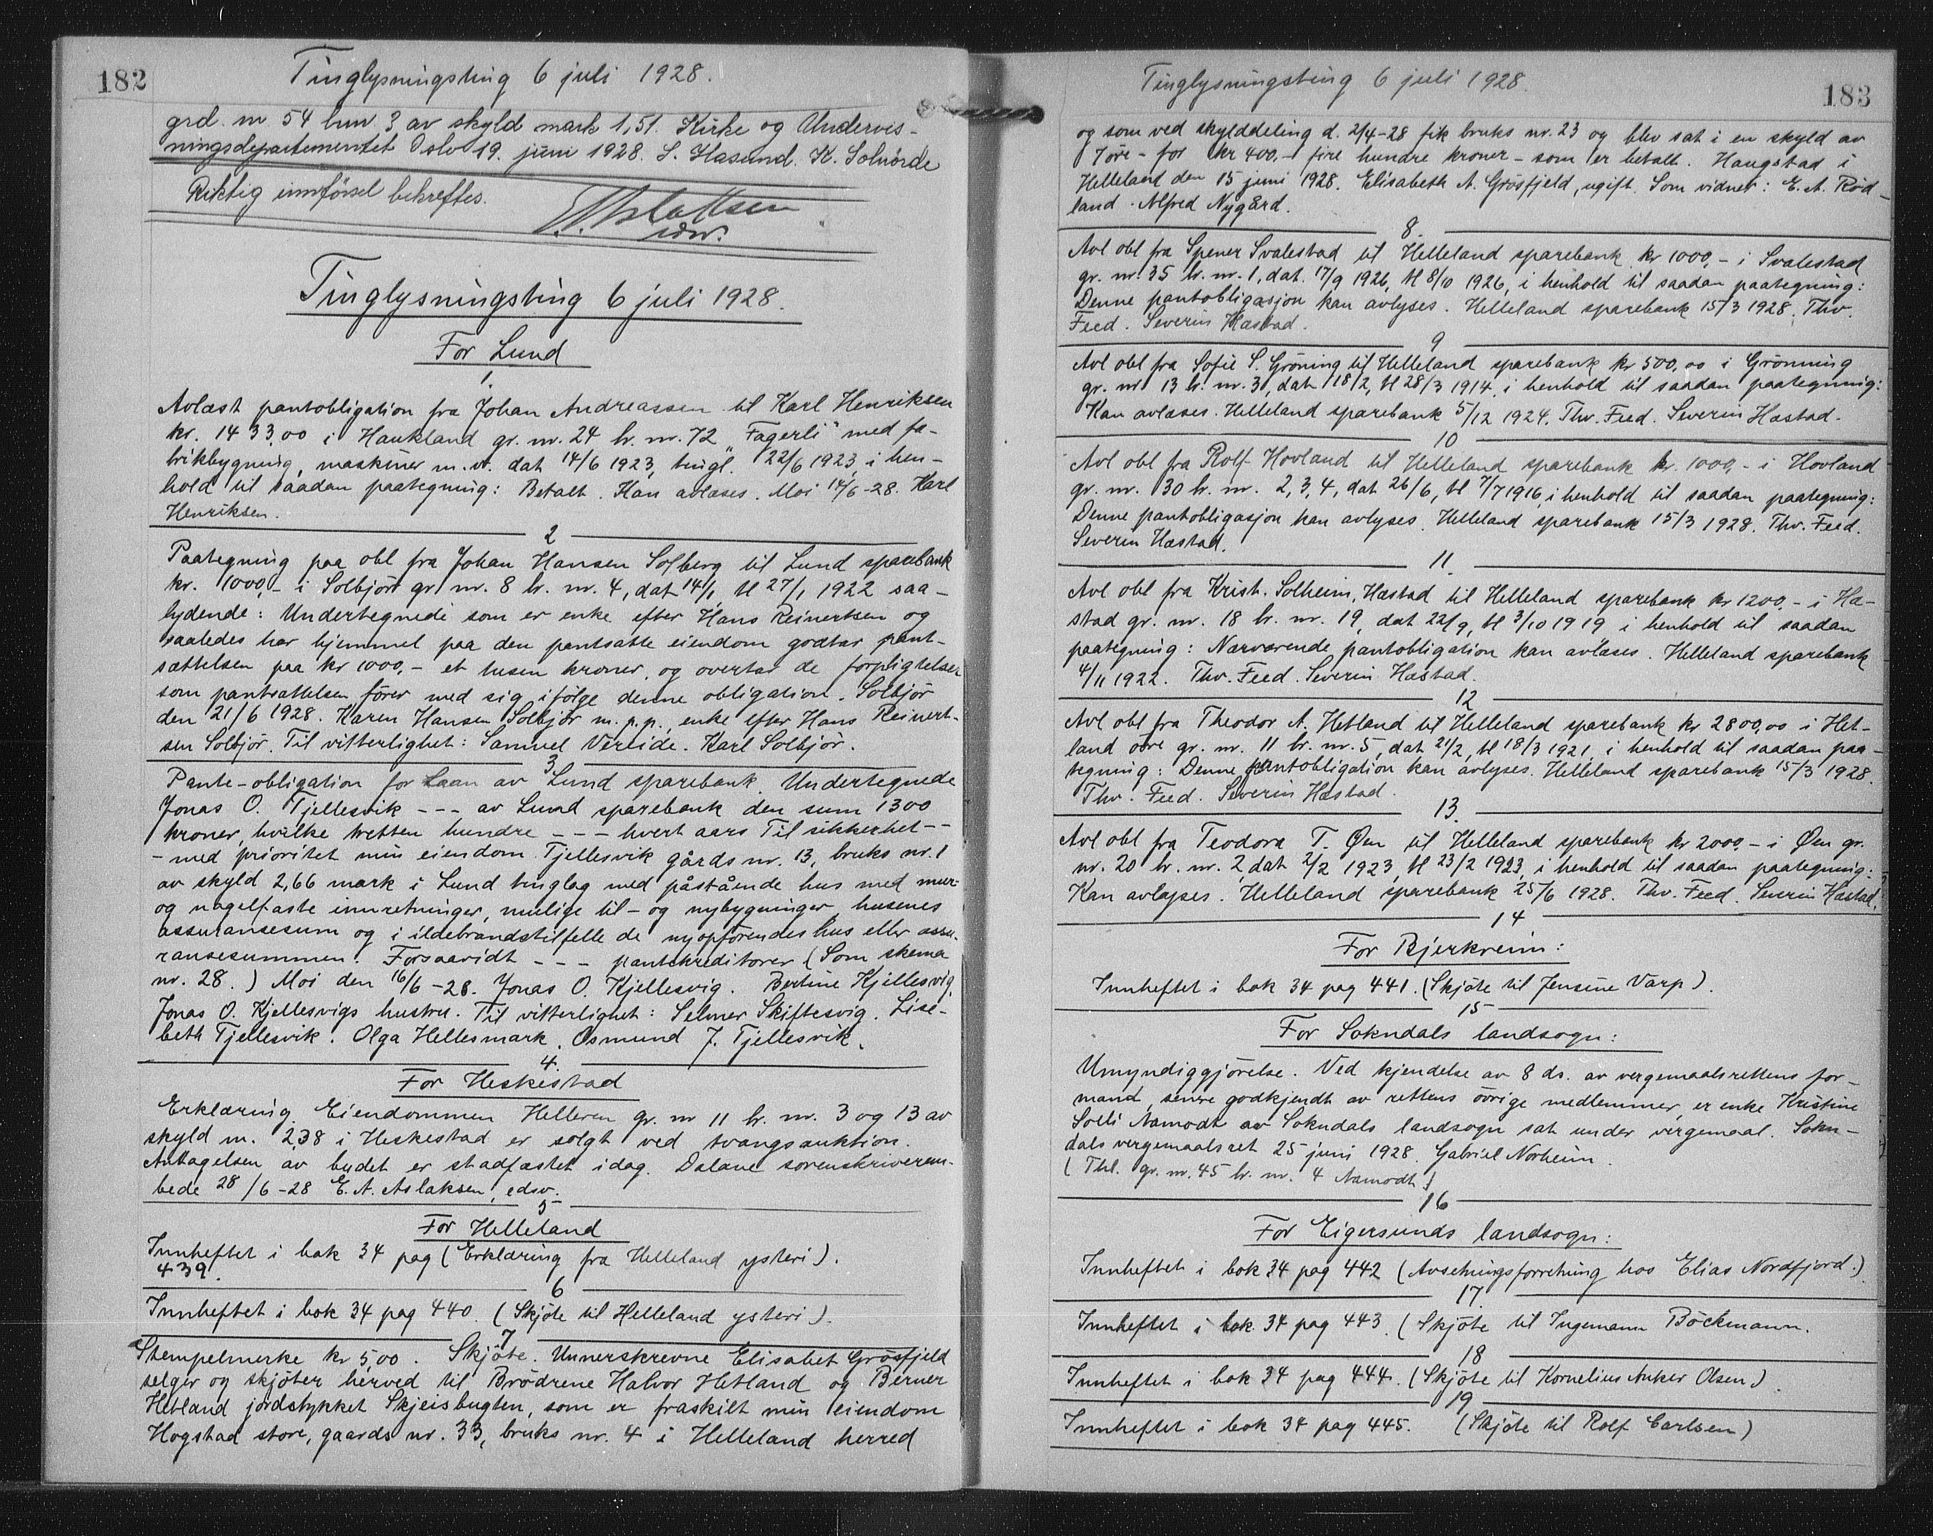 182
Tinglysningsting 6 juli 1928.
grd. nr 54 bnr. 3 av skyld mark 1,51. Kirke og Undervis-
ningsdepartementet Oslo 19. juni 1928. S. Hasund. K. Solnørde
Riktig innførsel bekreftes.
Tinglysningsting 6 juli 1928.
For Lund
1.
Avlæst pantobligation fra Johan Andreassen til Karl Henriksen
kr. 1433,00 i Haukland gr. nr. 24 br. nr. 72 "Fagerli" med fa-
brikbygning, maskiner m. v. dat 14/6 1923, tingl. 22/6 1923, i hen-
hold til saadan paategning: Betalt. Kan avlæses. Moi 14/6-28. Karl
Henriksen.
2
Paategning paa obl fra Johan Hansen Solberg til Lund sparebank
kr. 1000,- i Solbjør gr nr. 8 br. nr. 4, dat 14/1, tl 27/1 1922 saa-
lydende: Undertegnede som er enke efter Hans Reinertsen og
saaledes har hjemmel paa den pantsatte eiendom godtar pant-
sættelsen paa kr 1000,- et tusen kroner, og overtar de forpligtelser
som pantsættelsen fører med sig ifølge denne obligation. Solbjør
den 21/6 1928. Karen Hansen Solbjør m. p. p., enke efter Hans Reinert-
sen Solbjør. Til vitterlighet: Samuel Verlide. Karl Solbjør.
3
Pante-obligation for Laan av Lund sparebank. Undertegnede
Jonas O. Tjellesvik --- av Lund sparebank den sum 1300
kroner, hvilke tretten hundre --- hvert aars Til sikkerhet --
- med prioritet min eiendom Tjellesvik gårds nr. 13, bruks nr. 1
av skyld 2,66 mark i Lund tinglag med påstående hus med mur-
og nagelfaste innretninger, mulige til- og nybygninger, husenes
assuransesum og i ildebrandstilfelle de nyopførendes hus eller assu-
ransesummen. Forsaavidt --- pantekreditorer (Som skema
nr. 28.) Moi den 16/6-28. Jonas O. Kjellesvig. Bertine Kjellesvig,
Jonas O. Kjellesvigs hustru. Til vitterlighet: Selmer Skiftesvig. Lise-
beth Tjellesvik. Olga Hellesmark. Osmund J. Tjellesvik.
4.
For Heskestad
Erklæring. Eiendommen Helleren gr. nr 11 br. nr. 3 og 13 av
skyld m. 2,38 i Heskestad er solgt ved tvangsauktion.
Antagelsen av budet er stadfæstet idag. Dalane sorenskriverem-
bede 28/6-28 E. A. Aslaksen, edsv.
5
For Helleland
Innheftet i bok 34 pag (Erklæring fra Helleland ysteri).
439.
6
Innheftet i bok 34 pag 440. (Skjøte til Helleland ysteri).
7
Stempelmerke kr 5,00. Skjøte. Unnerskrevne Elisabet Grøsfjeld
selger og skjøter herved til Brødrene Halvor Hetland og Berner
Hetland jordstykket Skjeisbugten, som er fraskilt min eiendom
Hogstad store, gaards nr. 33, bruks nr. 4 i Helleland herred
183
Tinglysningsting 6 juli 1928.
og som ved skylddeling d. 2/4-28 fik bruks nr. 23 og blev sat i en skyld av
7 øre - for kr 400,- fire hundre kroner - som er betalt. Haugstad i
Helleland den 15 juni 1928. Elisabeth A. Grøsfjeld, ugift. Som vidner: E. A. Rød-
land. Alfred Nygård.
8.
Avl obl fra Spener Svalestad til Helleland sparebank kr 1000,- i Svalestad
gr. nr. 35 br. nr. 1, dat. 17/9 1926, tl 8/10 1926, i henhold til saadan paategning:
Denne pantobligasjon kan avlyses. Helleland sparebank 15/3 1928. Thv.
Feed. Severin Hæstad.
9
Avl obl fra Sofie S. Grøning til Helleland sparebank kr 500,00 i Grønning
gr. nr 13 br. nr. 3, dat 18/2, tl 28/3 1914, i henhold til saadan paategning:
Kan avlæses. Helleland sparebank 5/12 1924. Thv. Feed. Severin Hæstad.
10
Avl obl fra Rolf Hovland til Helleland sparebank kr. 1000,- i Hovland
gr. nr. 30 br. nr. 2, 3, 4, dat 26/6, tl 7/7 1916, i henhold til saadan paategning:
Denne pantobligasjon kan avlyses. Helleland sparebank 15/3 1928. Thv. Feed.
Severin Hæstad.
11.
Avl obl fra Krist. Solheim, Hæstad til Helleland sparebank kr 1200,- i Hæ-
stad gr. nr. 18 br. nr. 19, dat 22/9, tl 3/10 1919 i henhold til saadan
paategning: Nærværende pantobligation kan avlæses. Helleland sparebank
4/11 1922. Thv. Feed. Severin Hæstad.
12
Avl obl fra Theodor A. Hetland til Helleland sparebank kr 2800,00 i Het-
land øvre gr. nr. 11 br. nr. 5, dat 21/2, tl 18/3 1921, i henhold til saadan paa-
tegning: Denne pantobligation kan avlyses. Helleland sparebank 15/3 1928.
Thv. Feed. Severin Hæstad.
13.
Avl obl fra Teodora T. Øen til Helleland sparebank kr 2000,- i Øen gr.
nr. 20 br. nr. 2, dat 2/2 1923, tl 23/2 1923, i henhold til saadan paategning:
Kan avlyses. Helleland sparebank 25/6 1928. Thv. Feed. Severin Hæstad.
14
For Bjerkreim:
Innheftet i bok 34 pag 441. (Skjøte til Jensine Varp).
15
For Sokndals landsogn:
Umyndiggjørelse. Ved kjendelse av 8 ds. av vergemaalsrettens for-
mand, senere godkjendt av rettens øvrige medlemmer, er enke Kristine
Solli Namodt av Sokndals landsogn sat under vergemaal. Sokn-
dals vergemaalsret 25 juni 1928. Gabriel Norheim.
(Thl. gr. nr. 45 br. nr. 4 Aamodt)
16
For Eigersunds landsogn:
Innheftet i bok 34 pag 442 (Avsetningsforretning hos Elias Nordfjord.)
17.
Innheftet i bok 34 pag 443. (Skjøte til Ingemann Böckmann.
18
Innheftet i bok 34 pag 444. (Skjøte til Kornelius Anker Olsen)
19
Innheftet i bok 34 pag 445. (Skjøte til Rolf Carlsen)